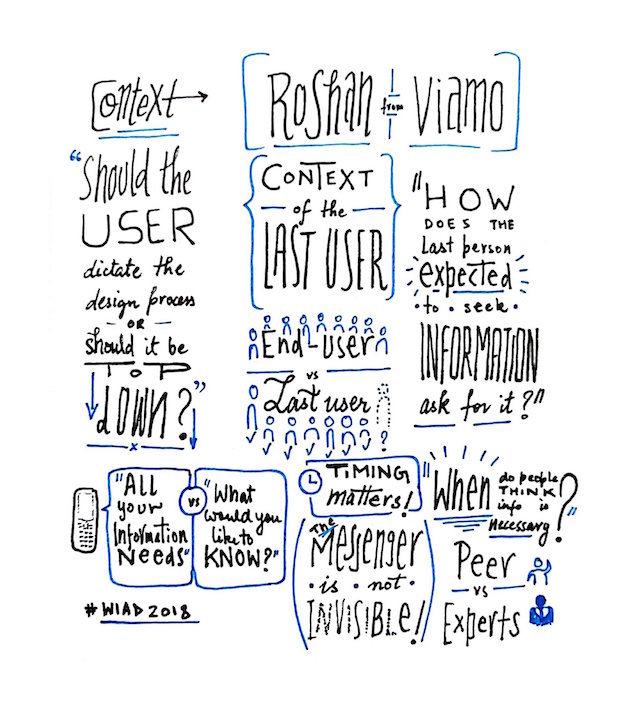 Context
Roshan from Viamo
"Should the
USER
dictate the
design process
OR
should it be
TOP
dOWN?"
CONTEXT
of the
LAST USER
End-user
vs
Last user
?
"HOW
DOES THE
Last person
expected
to seek
INFORMATION
ask for it?"
"ALL
your
Information
NEEDS"
vs
"What
would you
like to
KNOW?"
TIMING
matters!
The
Messenger
is not
INVISIBLE!
"When do people
THINK
info is
necessary?
Peer
vs
Experts
#WIAD2018